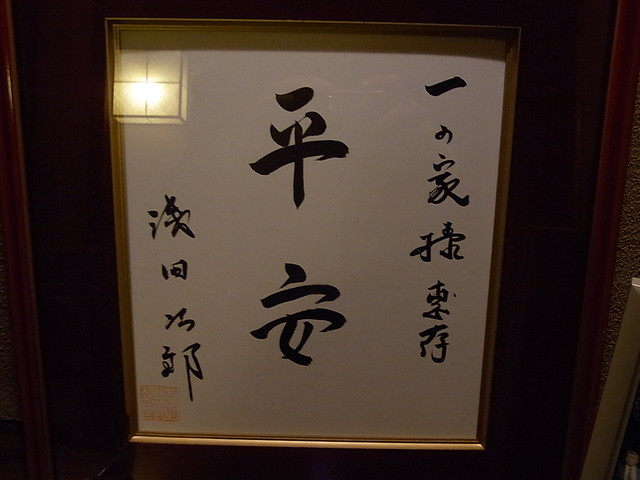 一の家様恵存
平安
浅田次郎